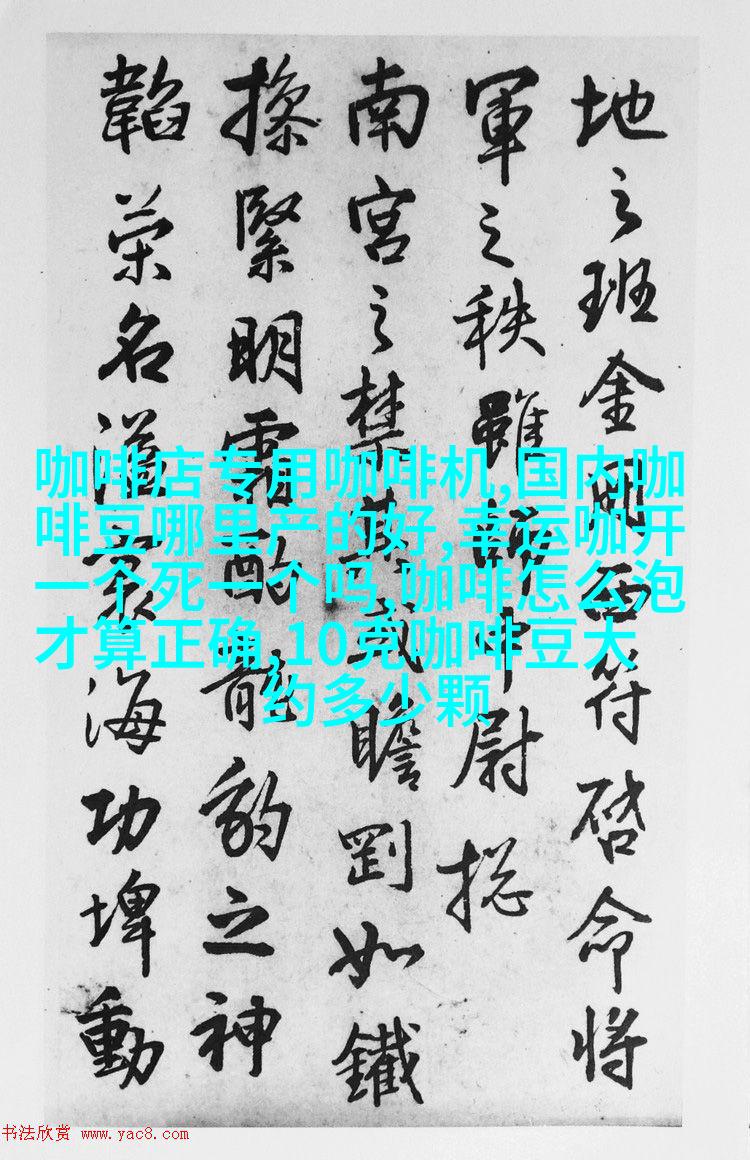 地之班金西符啓命将
軍之秩雖中尉揔
南宮之禁或瞻如鐵
操緊明霜酷龍豹之神
韜榮名溢寰海功埤動
咖啡店专用咖啡机,国内咖
啡豆哪里产的好,幸运咖开
一个死一个吗,咖啡怎么泡
才算正确,10克咖啡豆大
约多少颗
书法欣赏 www.yac8.com